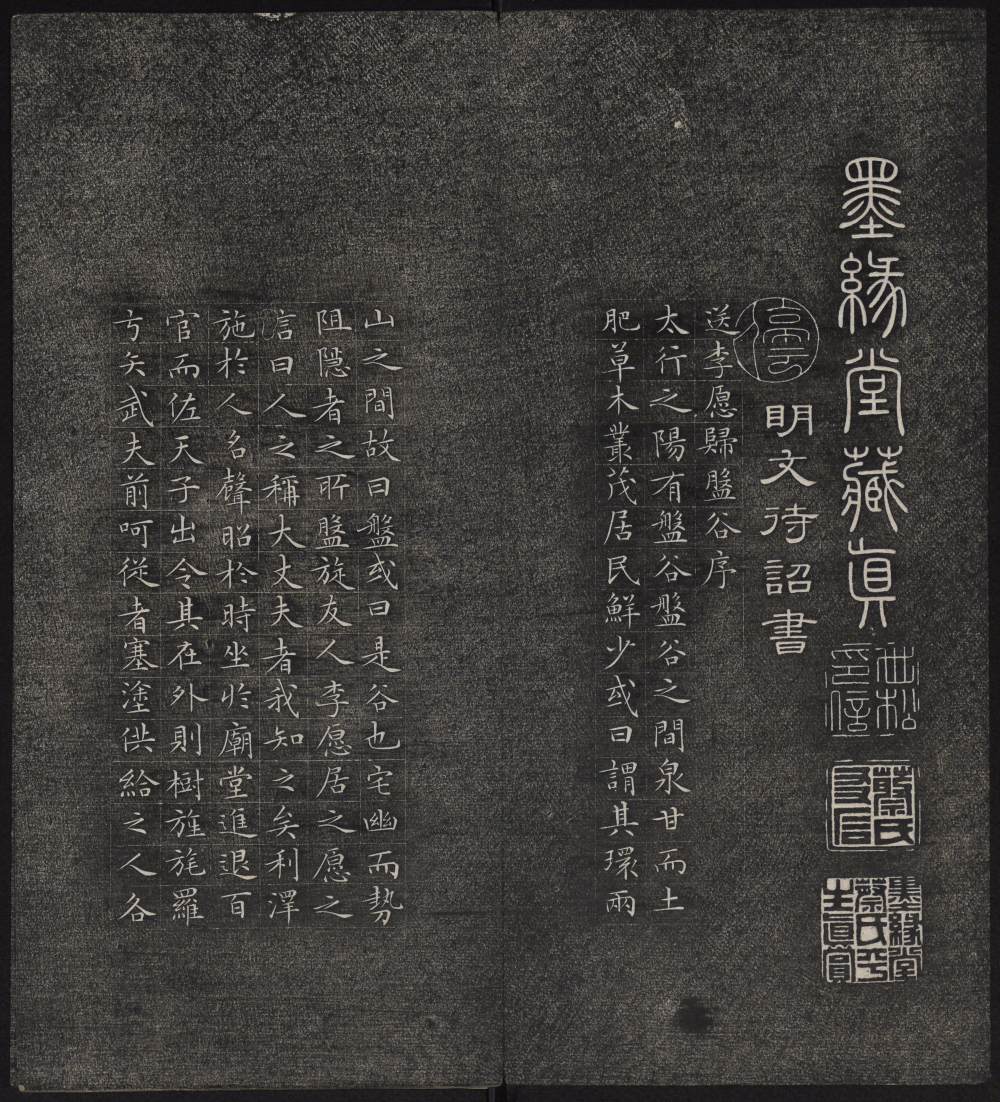 墨緣堂藏真
世松印信
墨緣堂蔡氏平生真賞
明文待詔書
停雲
送李愿歸盤谷序
太行之陽有盤谷盤谷之間泉甘而土
肥草木叢茂居民鮮少或曰謂其環兩
山之間故曰盤或曰是谷也宅幽而勢
阻隱者之所盤旋友人李愿居之愿之
言曰人之稱大丈夫者我知之矣利澤
施於人名聲昭於時坐於廟堂進退百
官而佐天子出令其在外則樹旌旄羅
弓矢武夫前呵從者塞塗供給之人各